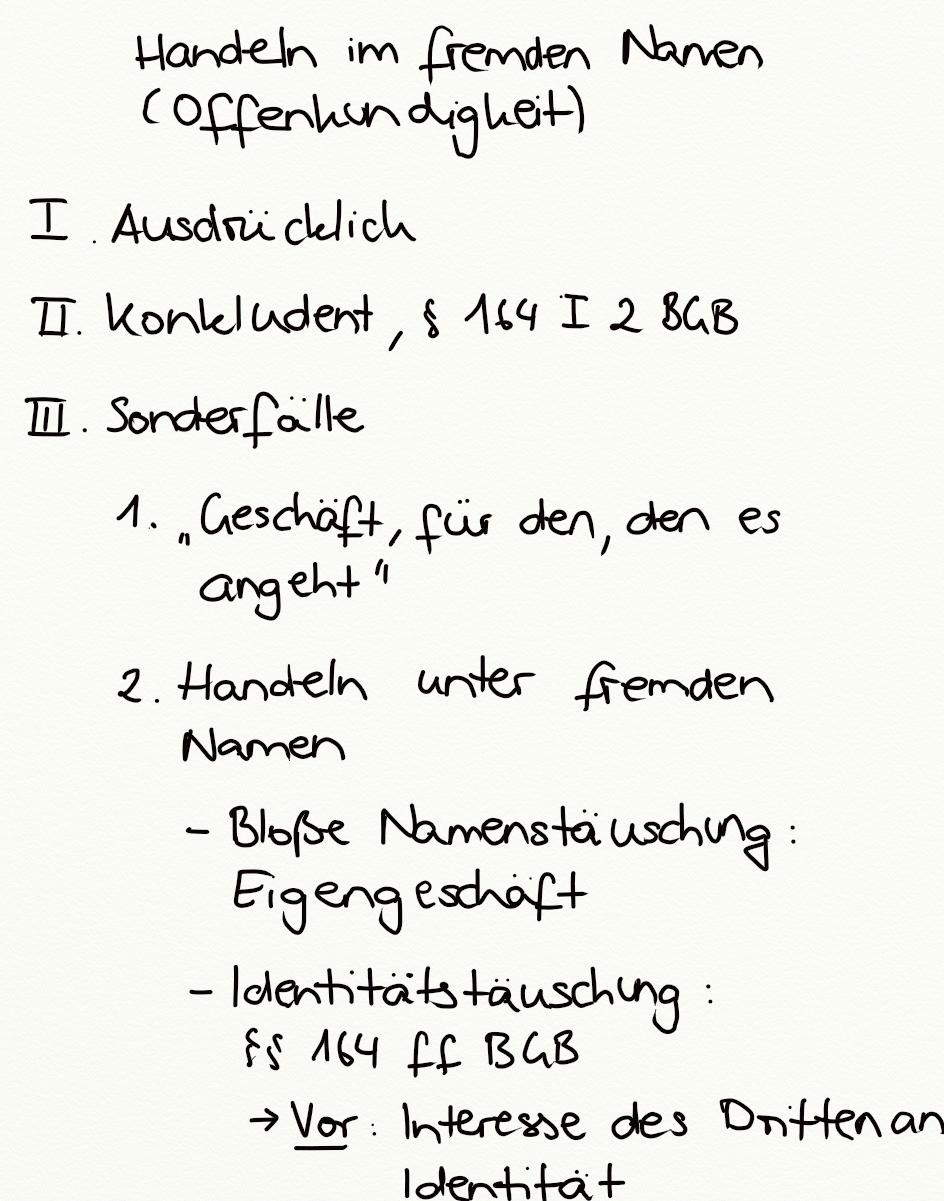 Handeln im fremden Namen
(Offenkundigkeit)
I. Ausdrücklich
II. Konkludent, § 164 I 2 BGB
III. Sonderfälle
1. „Geschäft, für den, den es
angeht"
2. Handeln unter fremden
Namen
- Bloße Namenstäuschung:
Eigengeschäft
- Identitätstäuschung:
§§ 164 ff BGB
→ Vor: Interesse des Dritten an
Identität